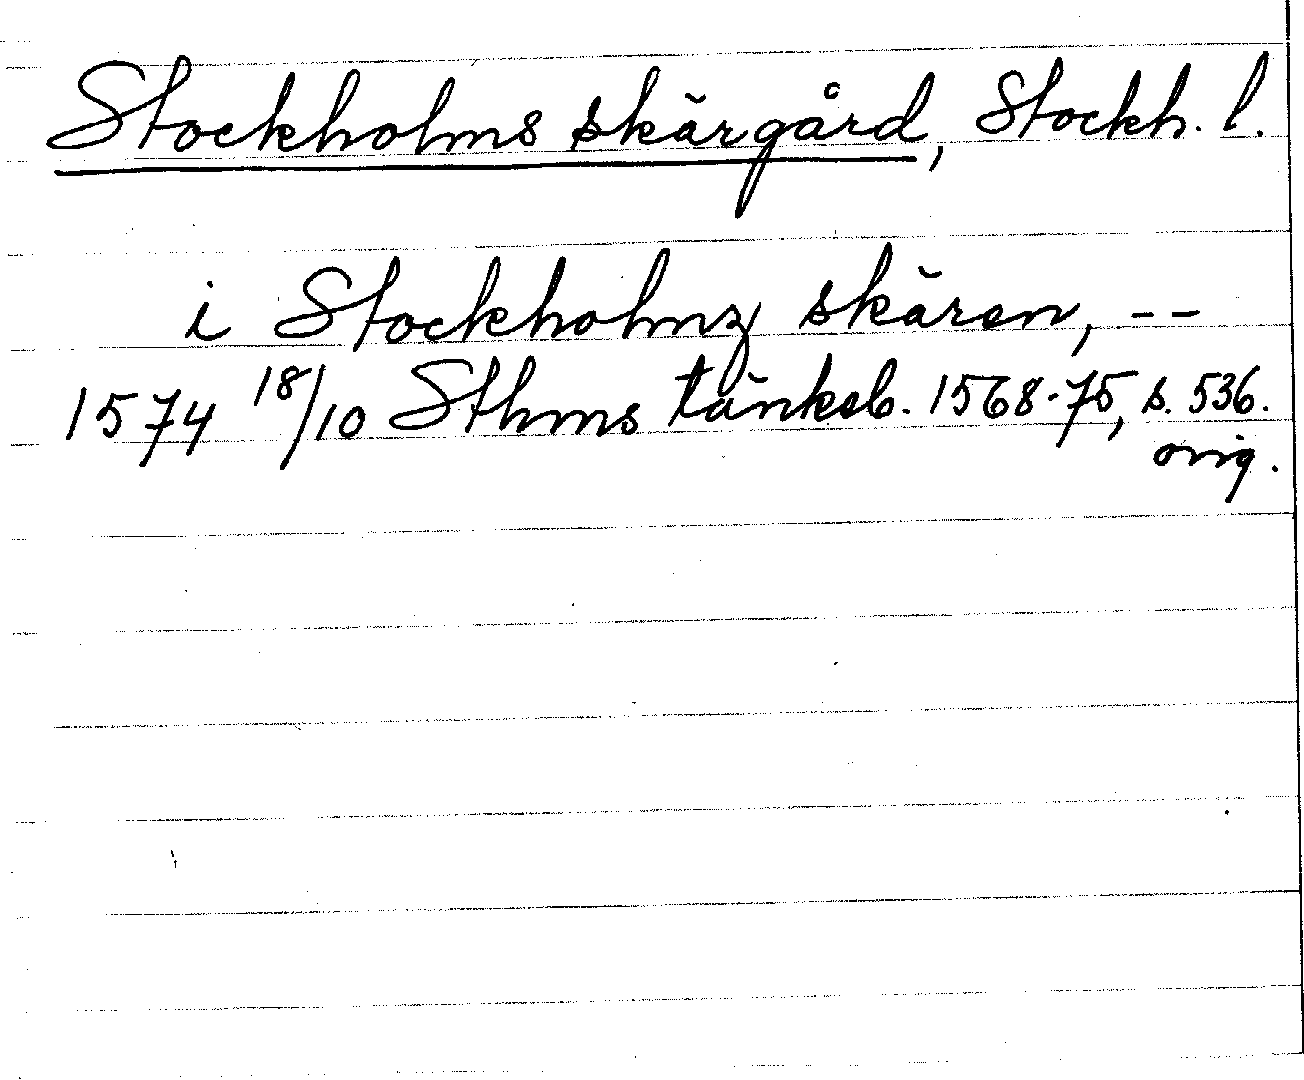 Stockholms skärgård, Stockh. l.
i Stockholmz skären, --
1574 18/10 Sthms tänkeb. 1568-75, s. 536.
orig.